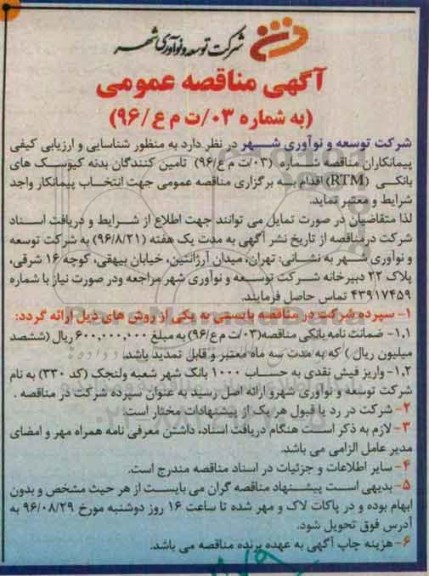 شرکت توسعه و نوآوری شهر
آگهی مناقصه عمومی
(به شماره ۰۳/ت م ع/۹۶)
شرکت توسعه و نوآوری شهر در نظر دارد به منظور شناسایی و ارزیابی کیفی
پیمانکاران مناقصه شماره (۰۳/ت م ع/۹۶) تامین کنندگان بدنه کیوسک های
بانکی (RTM) اقدام به برگزاری مناقصه عمومی جهت انتخاب پیمانکار واجد
شرایط و معتبر نماید.
لذا متقاضیان در صورت تمایل می توانند جهت اطلاع از شرایط و دریافت اسناد
شرکت درمناقصه از تاریخ نشر آگهی به مدت یک هفته (۹۶/۸/۲۱) به شرکت توسعه
و نوآوری شهر به نشانی: تهران، میدان آرژانتین، خیابان بیهقی، کوچه ۱۶ شرقی،
پلاک ۲۲ دبیرخانه شرکت توسعه و نوآوری شهر مراجعه ودر صورت نیاز با شماره
۴۳۹۱۷۴۵۹ تماس حاصل فرمایند.
۱- سپرده شرکت در مناقصه بایستی به یکی از روش های ذیل ارائه گردد:
۱،۱- ضمانت نامه بانکی مناقصه(۰۳/ت م ع/۹۶) به مبلغ ۶۰۰,۰۰۰,۰۰۰ ریال (ششصد
میلیون ریال) که به مدت سه ماه معتبر و قابل تمدید باشد.
۱،۲- واریز فیش نقدی به حساب ۱۰۰۰ بانک شهر شعبه ولنجک (کد ۳۳۰) به نام
شرکت توسعه و نوآوری شهرو ارائه اصل رسید به عنوان سپرده شرکت در مناقصه .
۲- شرکت در رد یا قبول هر یک از پیشنهادات مختار است.
۳- لازم به ذکر است هنگام دریافت اسناد، داشتن معرفی نامه همراه مهر و امضای
مدیر عامل الزامی می باشد.
۴- سایر اطلاعات و جزئیات در اسناد مناقصه مندرج است.
۵- بدیهی است پیشنهاد مناقصه گران می بایست از هر حیث مشخص و بدون
ابهام بوده و در پاکات لاک و مهر شده تا ساعت ۱۶ روز دوشنبه مورخ ۹۶/۰۸/۲۹ به
آدرس فوق تحویل شود.
۶- هزینه چاپ آگهی به عهده برنده مناقصه می باشد.